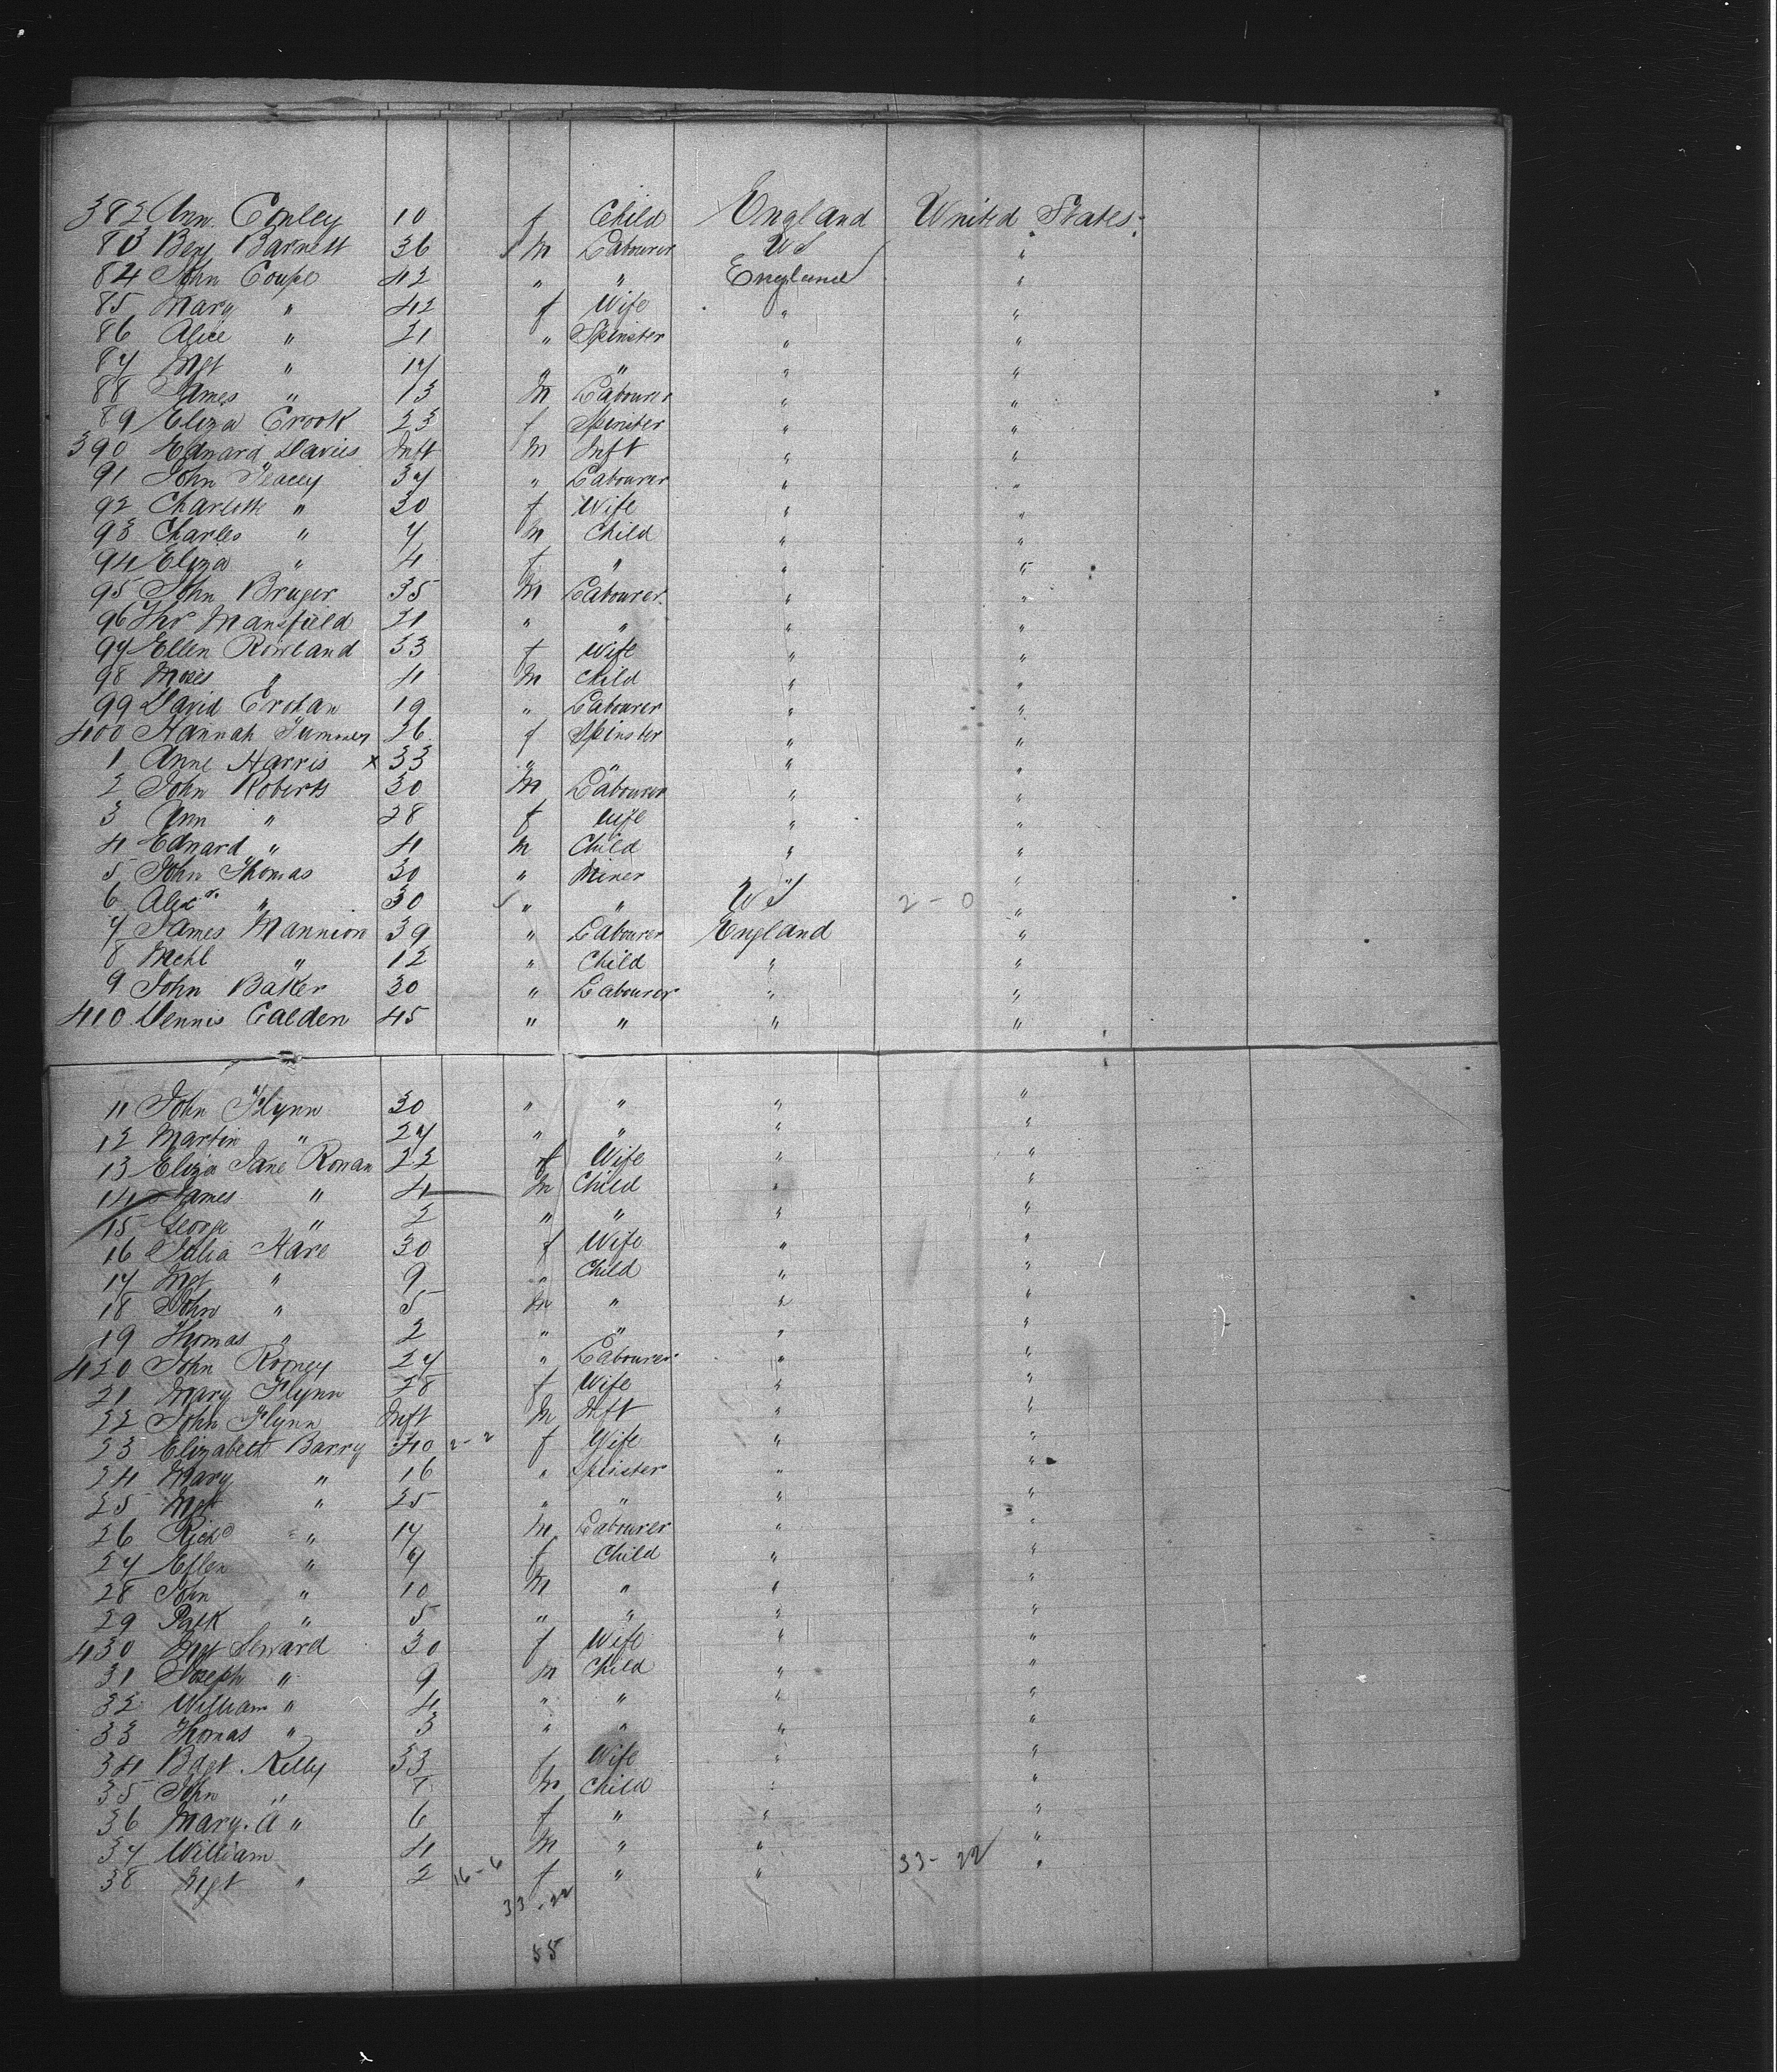 382 Ann Conley 10 f Child England United States
83 Benj Barnett 36 m Labourer US "
84 John Coupe 42 " " England "
85 Mary " 42 f Wife " "
86 Alice " 21 " Spinster " "
87 Mgt " 17 " " " "
88 James " 13 m Labourer " "
89 Eliza Crook 23 f Spinster " "
390 Edward Davies Inft m Inft " "
91 John Tracey 37 " Labourer " "
92 Charlotte " 30 f Wife " "
93 Charles " 7 m Child " "
94 Eliza " 4 f " " "
95 John Bruger 35 m Labourer " "
96 Thos Mansfield 21 " " " "
97 Ellen Rowland 33 f Wife " "
98 Moses " 4 m Child " "
99 David 19 " Labourer " "
400 Hannah 26 f Spinster " "
1 Anne Harris x 33 " " " "
2 John Roberts 30 m Labourer " "
3 Ann " 28 f Wife " "
4 Edward " 4 m Child " "
5 John Thomas 30 " Miner " "
6 Alexr " 30 " " US 2-0 "
7 James Mannion 39 " Labourer England "
8 Mchl " 12 " Child " "
9 John Baker 30 " Labourer " "
410 Dennis Calden 45 " " " "
11 John Flynn 30 " " " "
12 Martin " 27 " " " "
13 Eliza Jane Rowan 22 f Wife " "
14 James " 4 m Child " "
15 George " 2 " " " "
16 Julia Hare 30 f Wife " "
17 Mgt " 9 " Child " "
18 John " 5 m " " "
19 Thomas " 2 " " " "
420 John Rooney 27 " Labourer " "
21 Mary Flynn 28 f Wife " "
22 John Flynn Inft m Inft " "
23 Elizabeth Barry 40 2-2 f Wife " "
24 Mary " 16 " Spinster " "
25 Mgt " 25 " " " "
26 Richd " 17 m Labourer " "
27 Ellen " 7 f Child " "
28 John " 10 m " " "
29 Patk " 5 " " " "
430 Mgt Seward 30 f Wife " "
31 Joseph " 9 m Child " "
32 William " 4 " " " "
33 Thomas " 3 " " " "
34 Bdgt. Kelly 33 f Wife " "
35 John " 7 m Child " "
36 Mary. A " 6 f " " "
37 William 4 m " " "
38 Mgt " 2 16-6 f " " 33-22 "
33-22
55